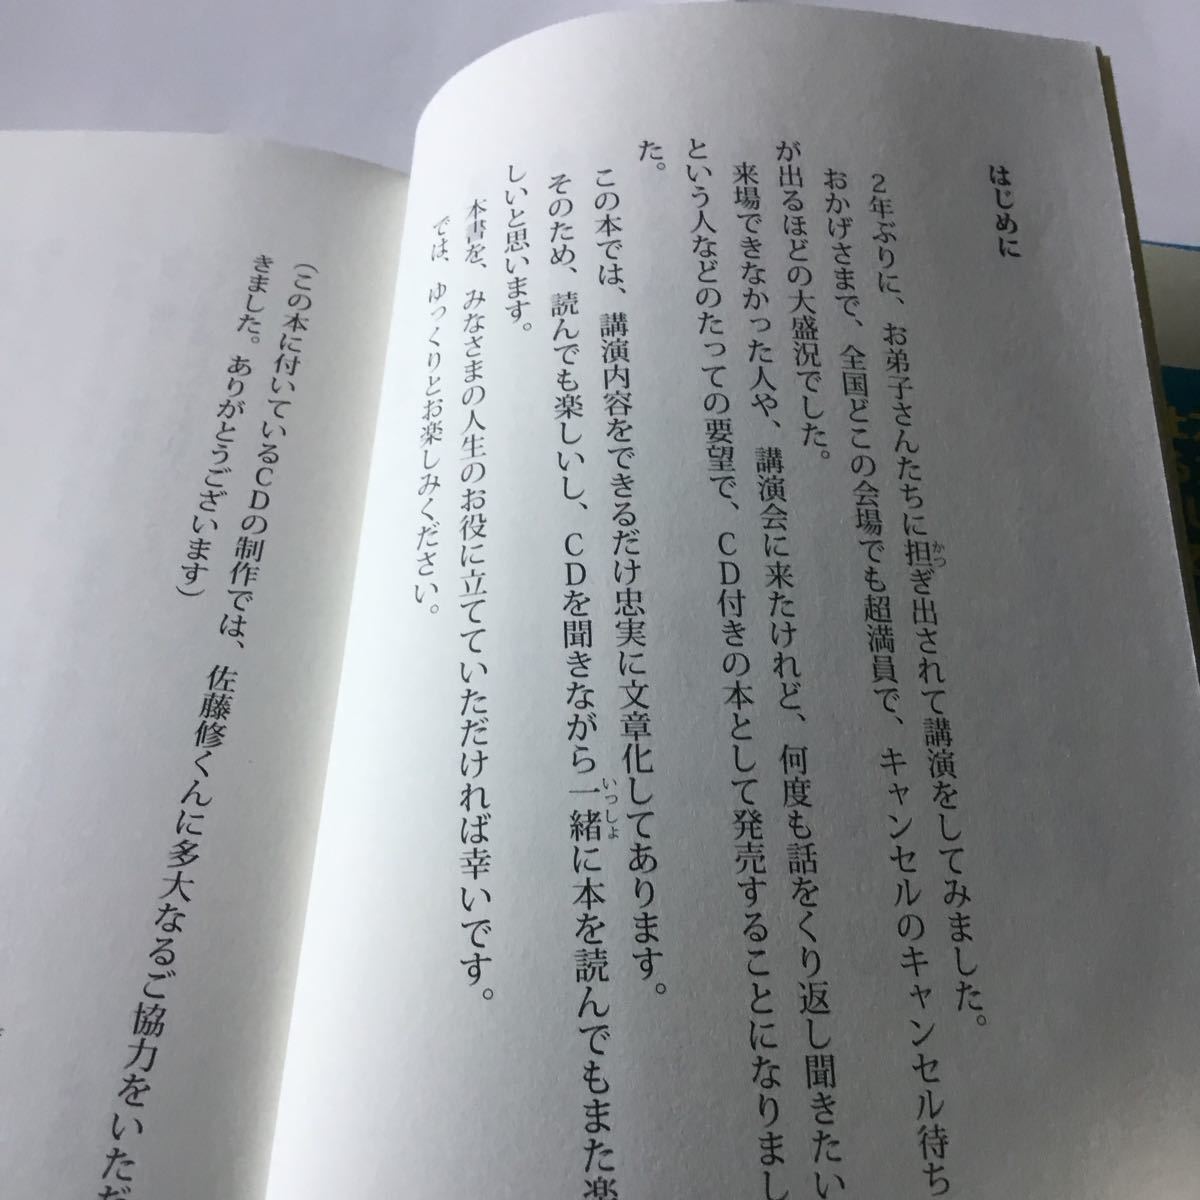 はじめに
2年ぶりに、お弟子さんたちに担ぎ出されて講演をしてみました。
おかげさまで、全国どこの会場でも超満員で、キャンセルのキャンセル待ち
が出るほどの大盛況でした。
来場できなかった人や、講演会に来たけれど、何度も話をくり返し聞きたい
という人などのたっての要望で、CD付きの本として発売することになりまし
た。
この本では、講演内容をできるだけ忠実に文章化してあります。
そのため、読んでも楽しいし、CDを聞きながら一緒に本を読んでもまた楽
しいと思います。
本書を、みなさまの人生のお役に立てていただければ幸いです。
では、ゆっくりとお楽しみください。
(この本に付いているCDの制作では、佐藤修くんに多大なるご協力をいただ
きました。ありがとうございます)